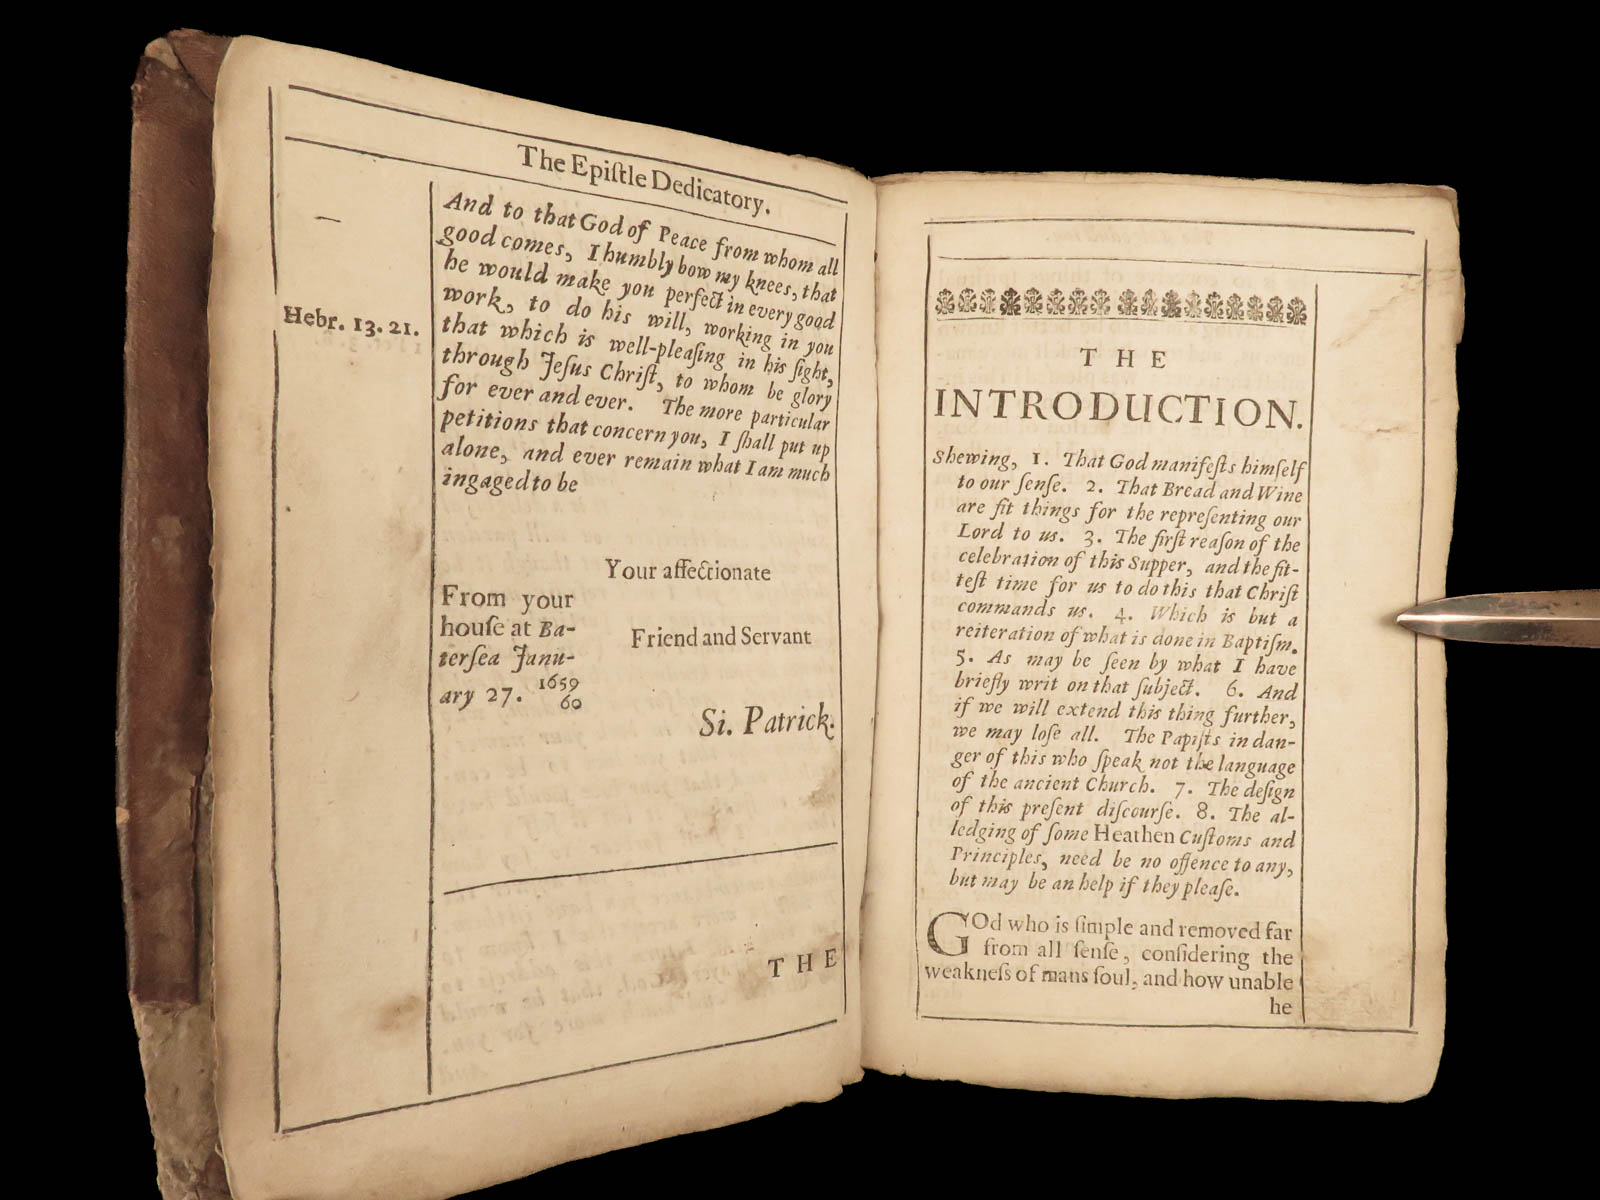 The Epiſtle Dedicatory.
Hebr. 13. 21.
And to that God of Peace from whom all
good comes, I humbly bow my knees, that
he would make you perfect in every good
work, to do his will, working in you
that which is well-pleaſing in his ſight,
through Jeſus Chriſt, to whom be glory
for ever and ever. The more particular
petitions that concern you, I ſhall put up
alone, and ever remain what I am much
ingaged to be
Your affectionate
Friend and Servant
From your
houſe at Ba-
terſea Janu-
ary 27. 1659
60
Si. Patrick.
THE
THE
INTRODUCTION.
Shewing, 1. That God manifeſts himſelf
to our ſenſe. 2. That Bread and Wine
are fit things for the repreſenting our
Lord to us. 3. The firſt reaſon of the
celebration of this Supper, and the fit-
teſt time for us to do this that Chriſt
commands us. 4. Which is but a
reiteration of what is done in Baptiſm.
5. As may be ſeen by what I have
briefly writ on that ſubject. 6. And
if we will extend this thing further,
we may loſe all. The Papiſts in dan-
ger of this who ſpeak not the language
of the ancient Church. 7. The deſign
of this preſent diſcourſe. 8. The al-
ledging of ſome Heathen Cuſtoms and
Principles, need be no offence to any,
but may be an help if they pleaſe.
GOd who is ſimple and removed far
from all ſenſe, conſidering the
weakneſs of mans ſoul, and how unable
he